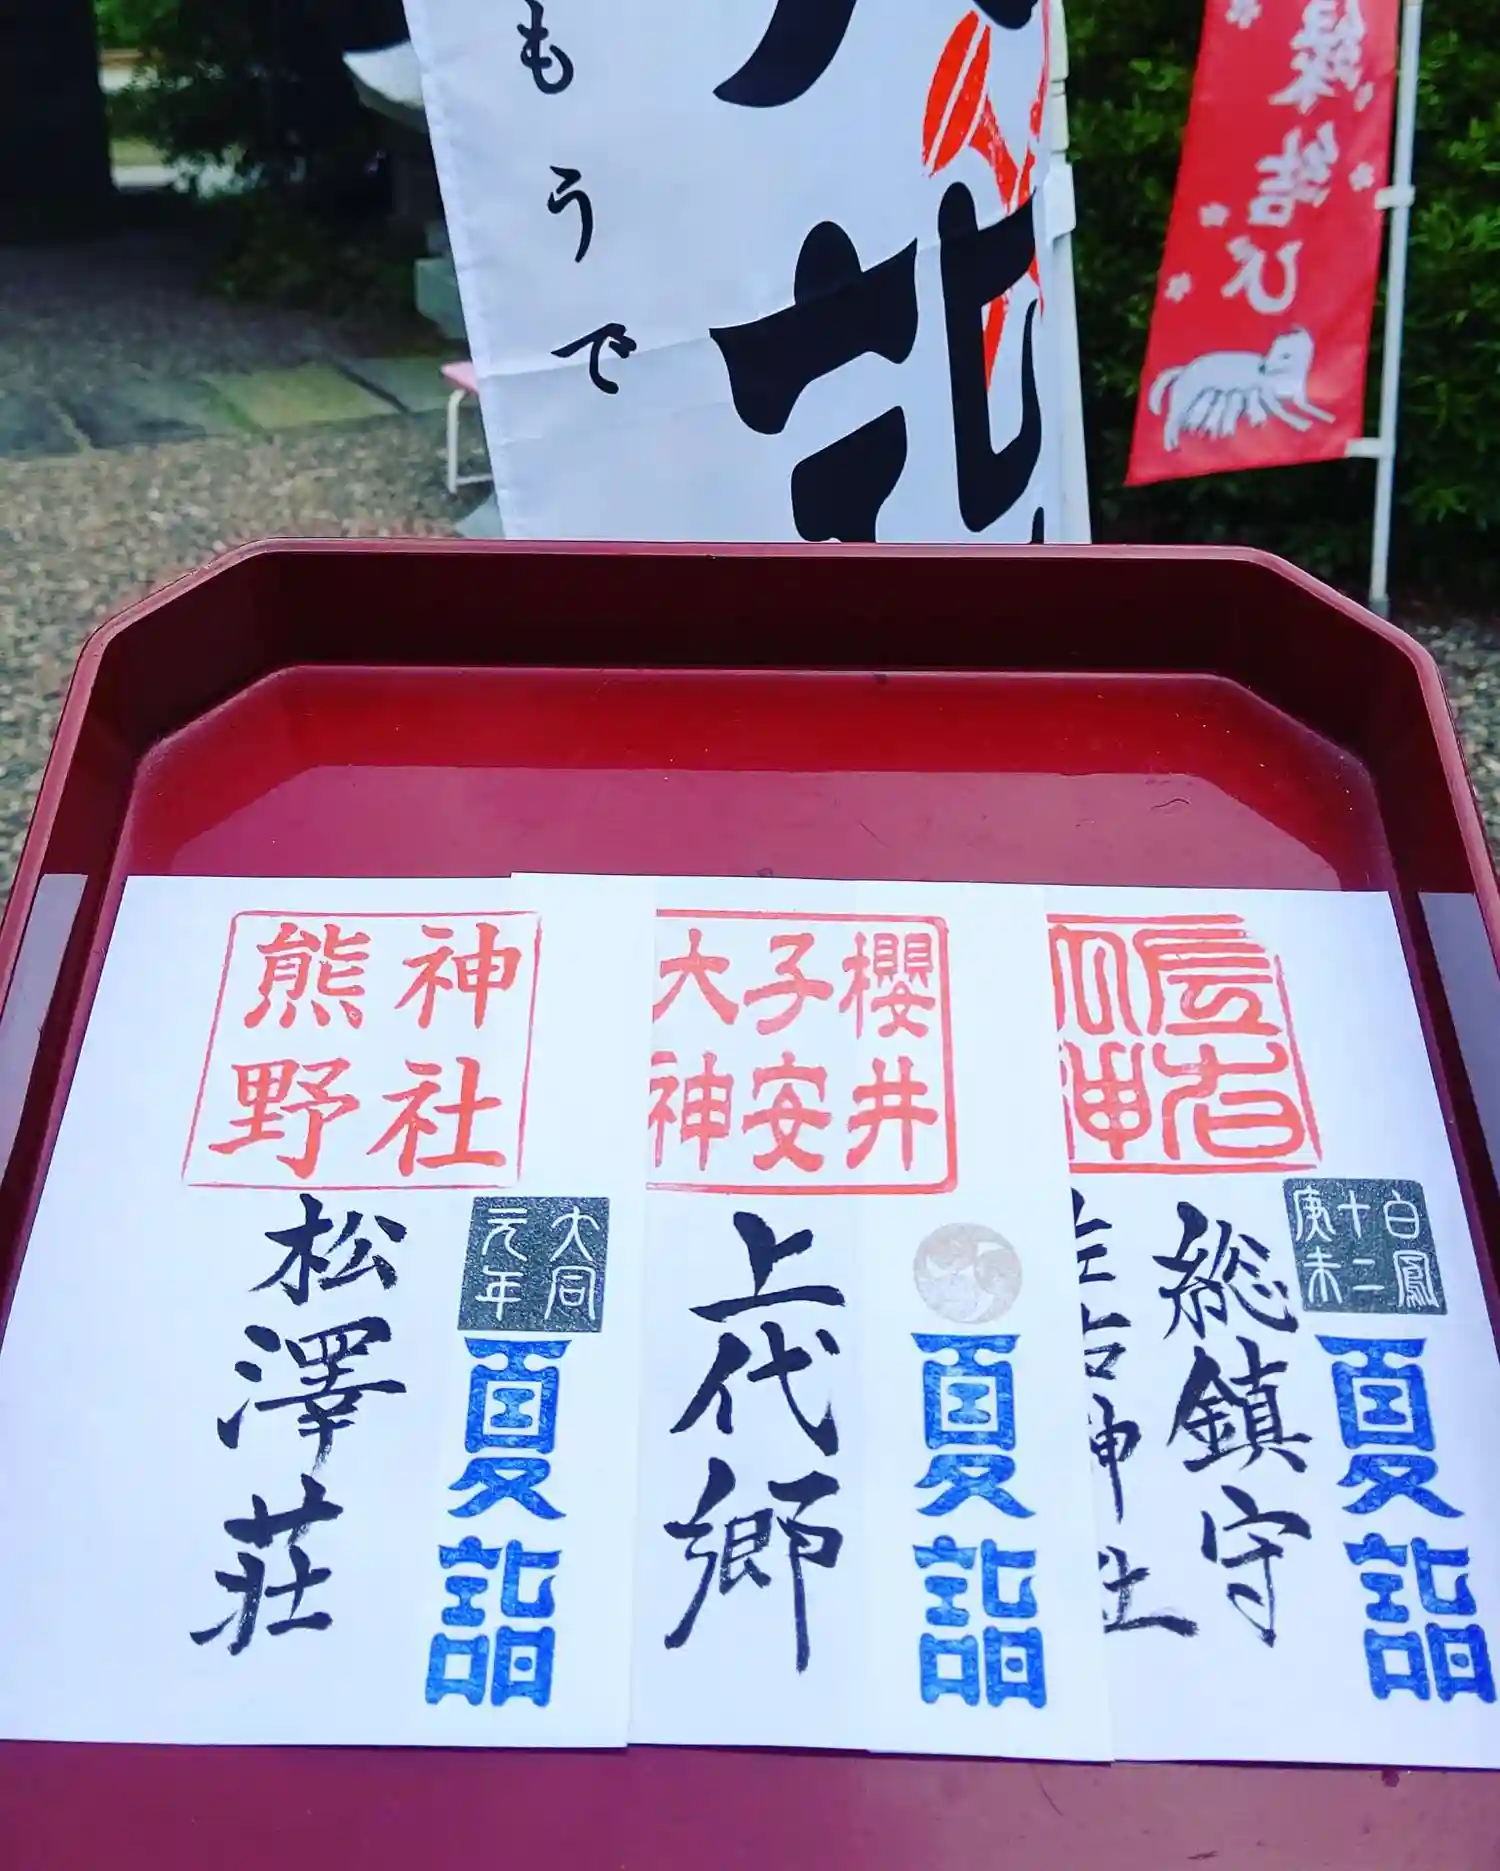 もうで
詣
縁結び
神社
熊野
大同
元年
松澤荘
夏詣
櫻井
子安
大神
上代郷
夏詣
白鳳
十二
総鎮守
夏詣